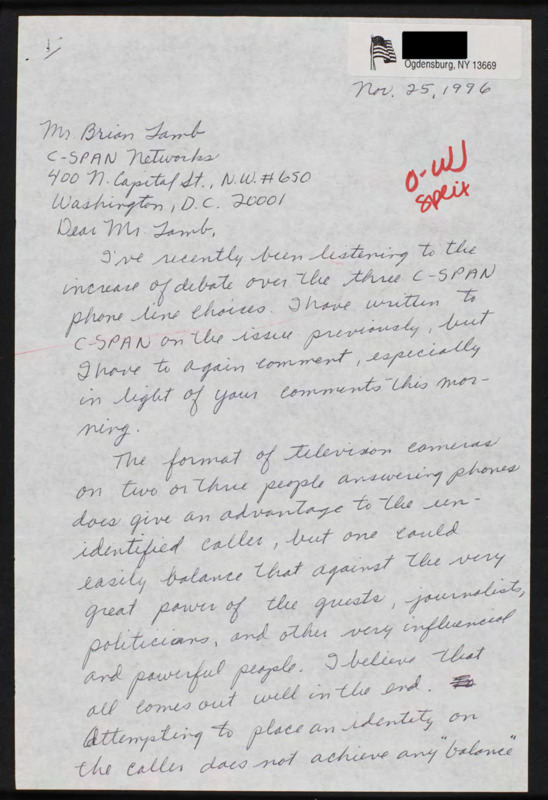 Ogdensburg, NY 13669
Nov. 25, 1996
Mr. Brian Lamb
C-SPAN Networks
400 N. Capital St., N.W. #650
Washington, D.C. 20001
Dear Mr. Lamb,
I've recently been listening to the
increase of debate over the three C-SPAN
phone line choices. I have written to
C-SPAN on the issue previously, but
I have to again comment, especially
in light of your comments this mor-
ning.
The format of television cameras
on two or three people answering phones
does give an advantage to the un-
identified caller, but one could
easily balance that against the very
great power of the guests, journalists,
politicians, and other very influencial
and powerful people. I believe that
all comes out well in the end.
Attempting to place an identity on
the caller does not achieve any "balance"